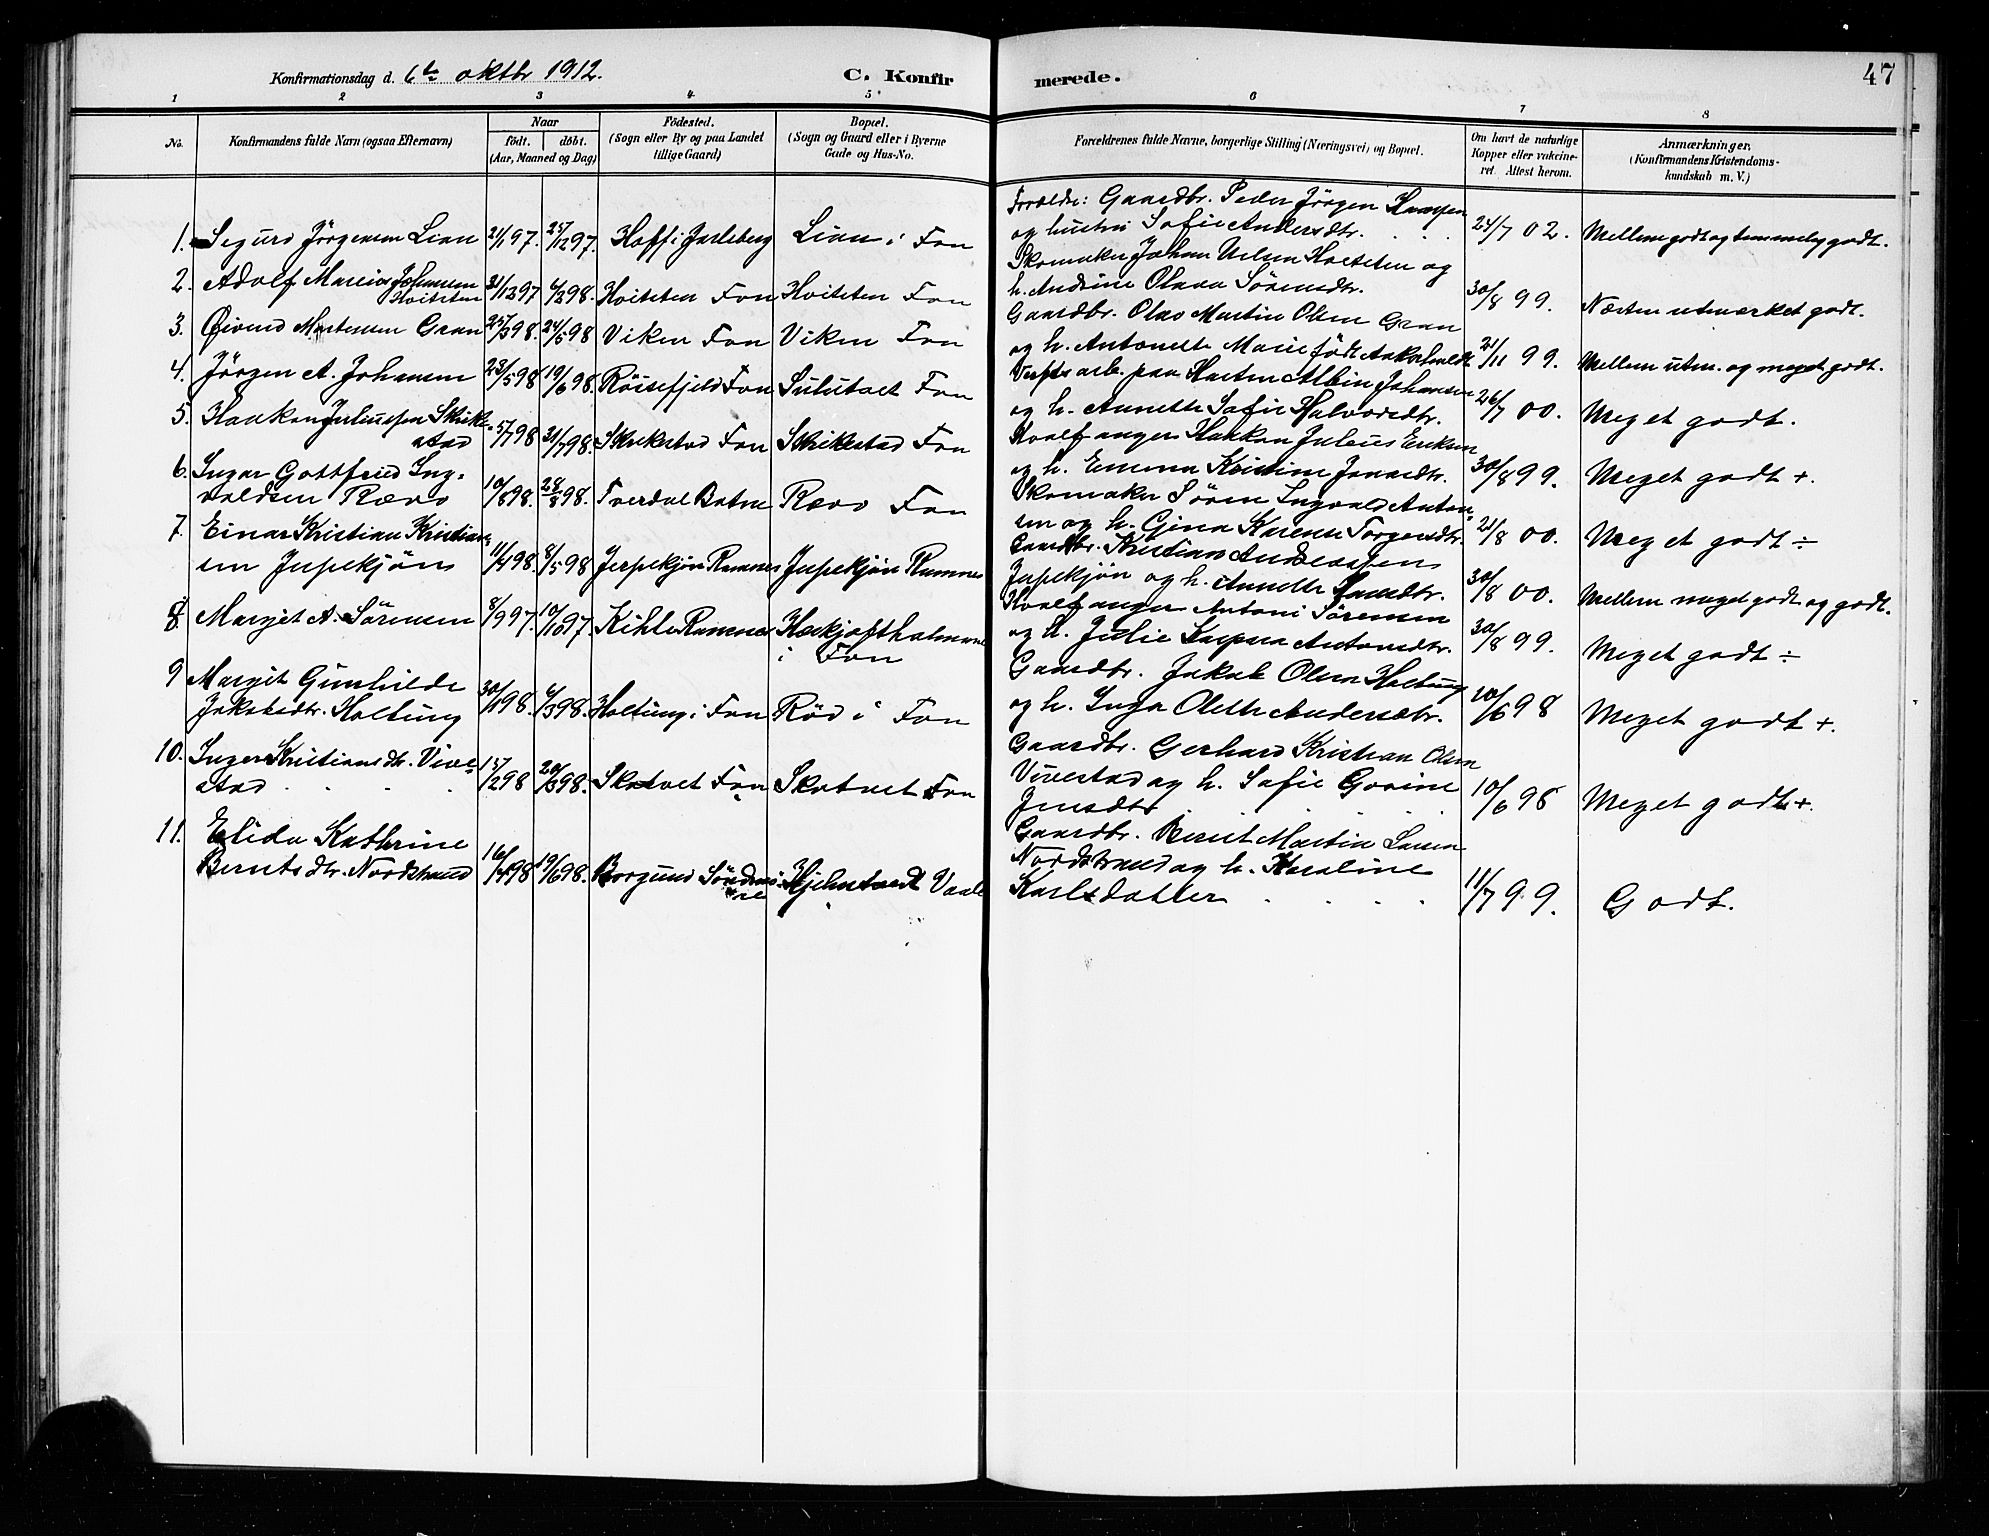 Konfirmationsdag d. 6te oktbr 1912. C. Konfirmerede. 47
1 2 3 4 5 6 7 8
No. Konfirmandens fulde Navn (ogsaa Efternavn) Naar födt. döbt. (Aar, Maaned og Dag) Födested. (Sogn eller By og paa Landet tillige Gaard) Bopæl. (Sogn og Gaard eller i Byerne Gade og Hus-No. Forældrenes fulde Navne, borgerlige Stilling (Næringsvei) og Bopæl. Om havt de naturlige Kopper eller vakcineret. Attest herom. Anmærkninger. (Konfirmandens Kristendomskundskab m. V.)
Forældre: Gaardbr. Peder Jörgen Hansen
1. Sigurd Jörgensen Lian 21/1 97. 25/12 97. Hoff i Jarlsberg Lian i Fon og hustru Sofie Andersdtr. 24/7 02. Mellem godt og temmelig godt.
Skomaker Johan Nilsen Hvitsten og
2. Adolf Marius Johansen Hvitsten 31/12 97 6/2 98. Hvitsten Fon Hvitsten Fon h. Andrine Olava Sörensdtr. 30/8 99. Næsten utmerket godt.
Gaardbr. Olav Martin Olsen Gran
3. Öivind Martinsen Gran 25/3 98. 24/5 98 Viken Fon Viken Fon og h. Antonette Marie född 21/11 99. Mellem utm. og meget godt.
Verfts arb. paa Horten Albin Johansen
4. Jörgen A. Johansen 23/5 98 19/6 98. Röisefjeld Fon Fon og h. Annette Sofie Halvorsdtr. 26/7 00. Meget godt.
Hvalfanger Haakon Julius Eriksen
5. Haakon Juliussen Skrikestad 5/7 98 31/7 98. Skrikestad Fon Skrikestad Fon og h. Emma Kristine Jonasdtr. 30/8 99. Meget godt +.
Skomaker Sören Ingvald Anton-
6. Ingar Gottfried Ingvaldsen Rævo 10/8 98. 28/8 98. Tverdal Botne Rævo Fon sen og h. Gina Karense Torgersdtr. 21/8 00. Meget godt ÷
Gaardbr. Kristian Anderssen
7. Einar Kristian Kristiansen Jerpekjön 11/4 98. 8/5 98 Jerpekjön Ramnes Jerpekjön Ramnes Jerpekjön og h. Annette Hansdtr. 30/8 00. Mellem meget godt og godt.
Hvalfanger Antoni Sörensen
8. Margit A. Sörensen 8/9 97. 10/10 97. Kihle Ramnes i Fon og h. Julie Antonsdtr. 30/8 99. Meget godt ÷
Gaardbr. Jakob Olsen Holtung
9 Margit Gunhilde Jakobsdtr. Holtung 30/1 98. 6/3 98. Holtung i Fon Röd i Fon og h. Inga Olette Andersdtr. 10/6 98 Meget godt +.
Gaardbr. Gerhard Kristian Olsen
10. Inger Kristiansdtr. Vivestad 15/2 98 20/3 98. Skatvet Fon Skatvet Fon Vivestad og h. Sofie Gorine Jensdtr 10/6 98 Meget godt +.
Gaardbr. Bernt Martin Larsen
11. Elida Kathrine Berntsdtr. Nordstrand 16/4 98 19/6 98. Borgund Söndmöre Hjelmtvedt Vaale Nordstrand og h. Karoline Karlsdatter 11/7 99. Godt.